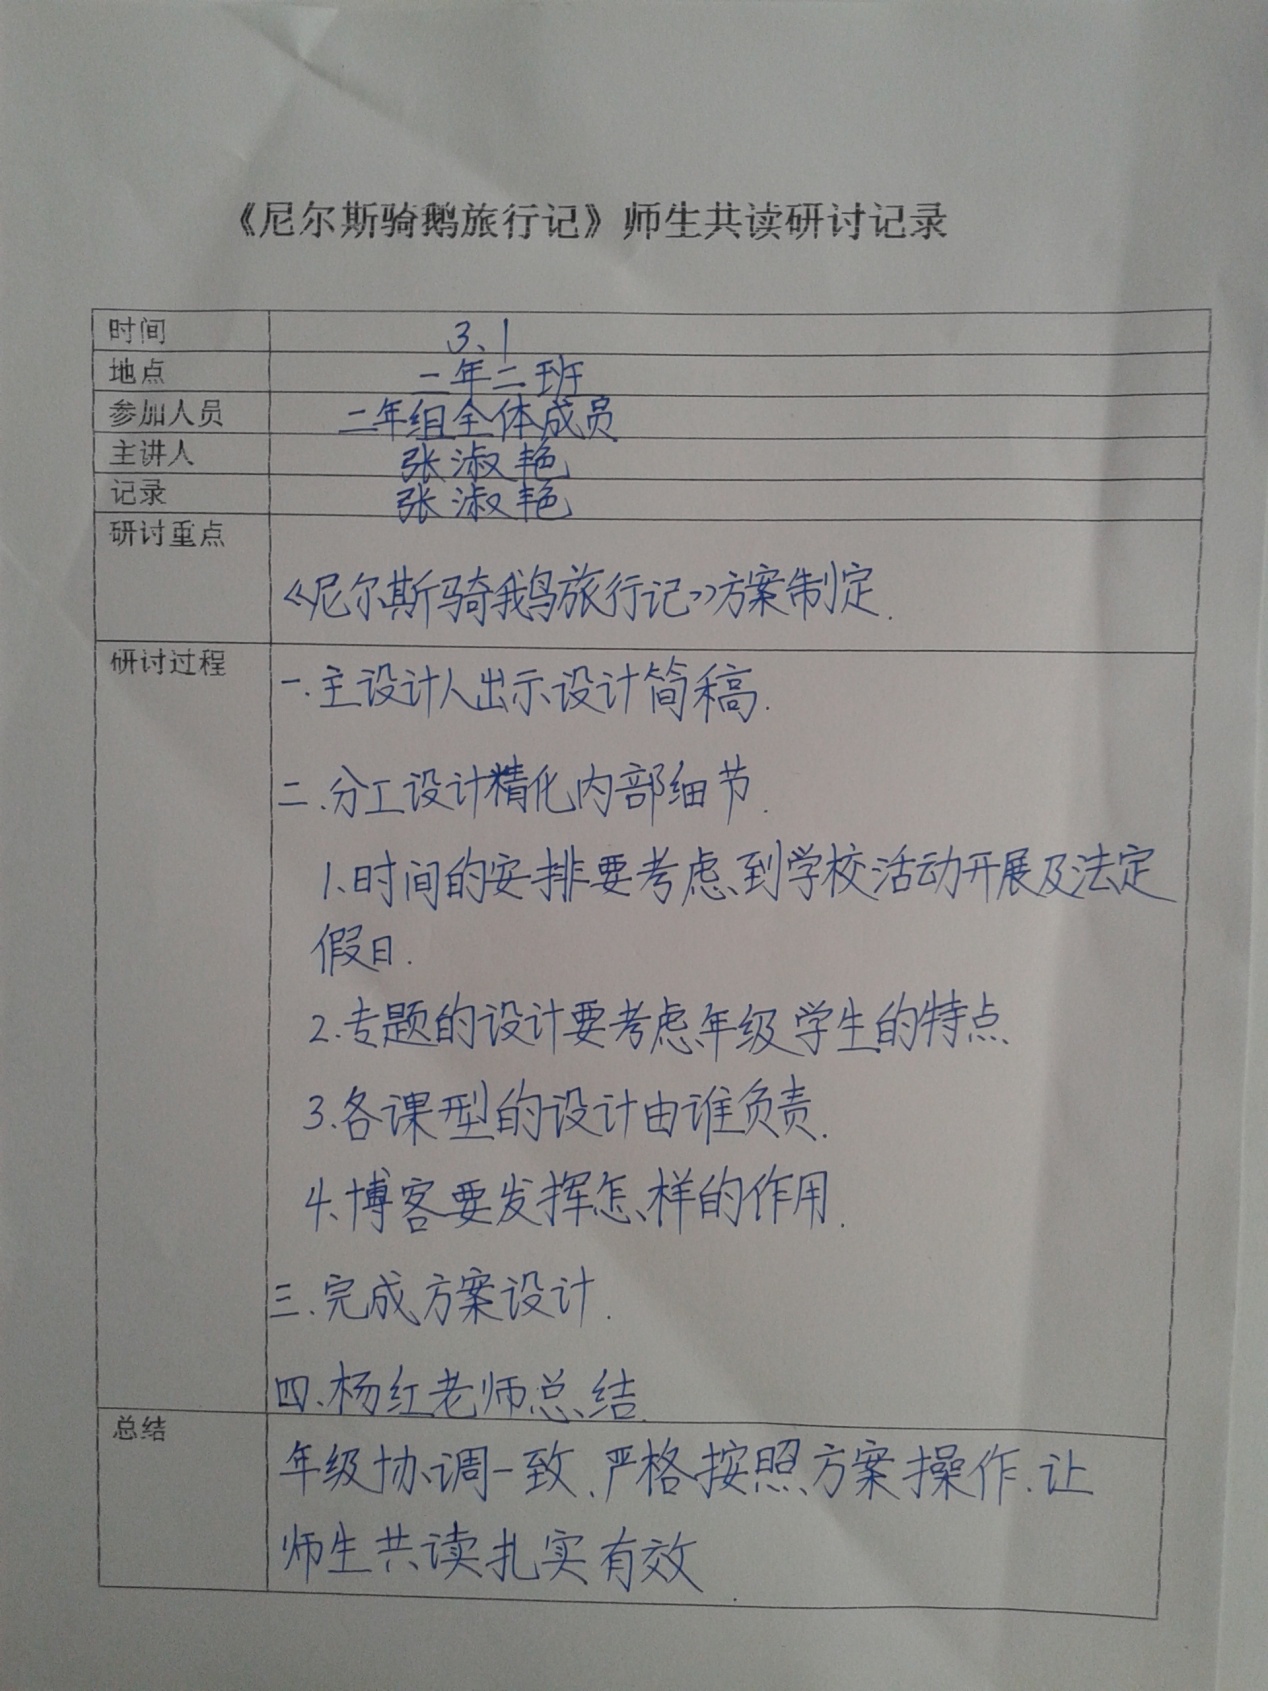 《尼尔斯骑鹅旅行记》师生共读研讨记录
时间 3、1
地点 二年二班
参加人员 二年组全体成员
主讲人 张淑艳
记录 张淑艳
研讨重点
《尼尔斯骑鹅旅行记》方案制定.
研讨过程
一.主设计人出示设计简稿.
二.分工设计精化内部细节.
1、时间的安排要考虑到学校活动开展及法定
假日.
2.专题的设计要考虑年级学生的特点.
3.各课型的设计由谁负责.
4、博客要发挥怎样的作用.
三.完成方案设计.
四、杨红老师总结.
总结
年级协调一致、严格按照方案操作、让
师生共读扎实有效.